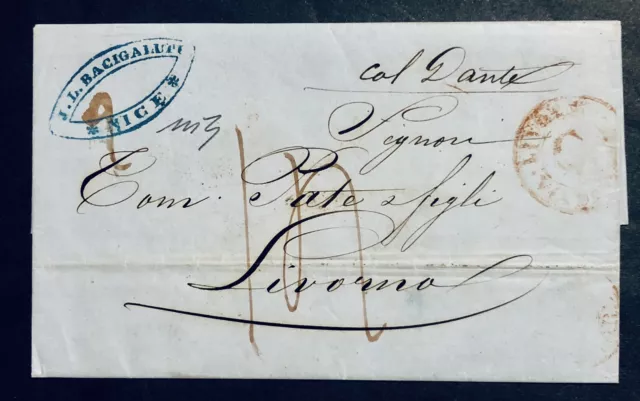 J. L. BACIGALUPO
* NICE *
col Dante
Signori
Tom. Pate & figli
Livorno